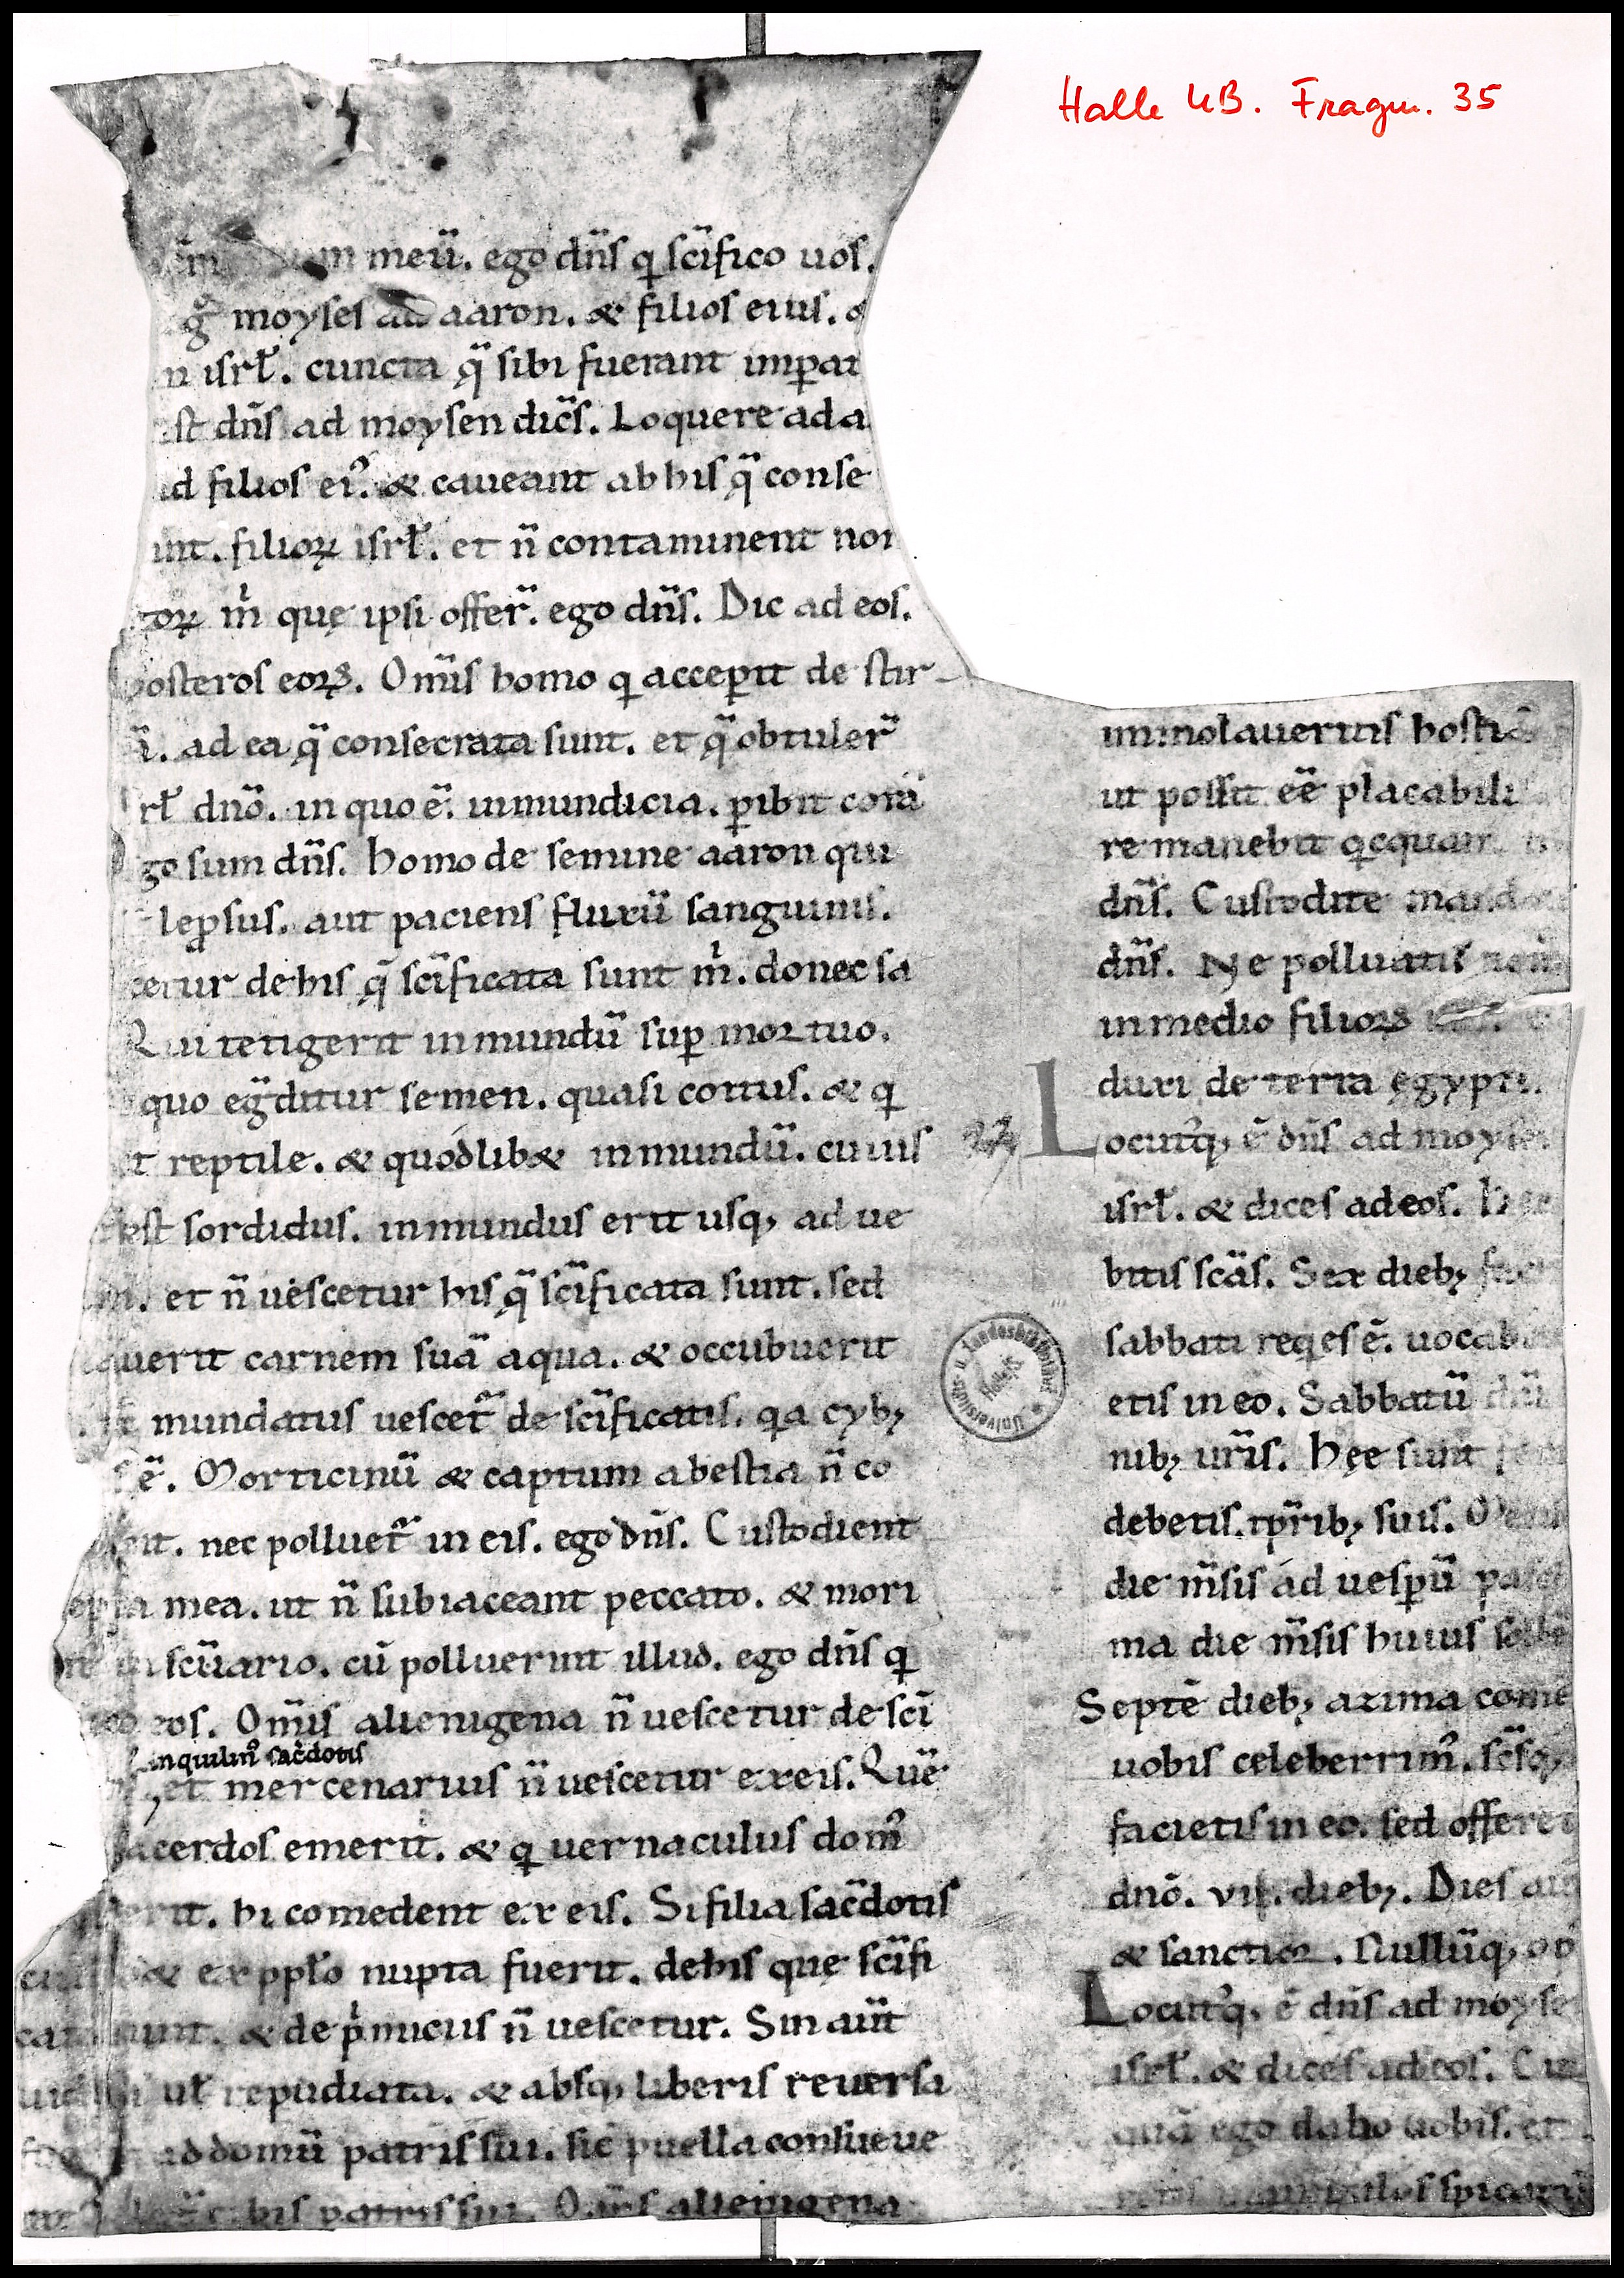 Halle UB. Fragm. 35
meū. ego dn̄s q scīfico uos.
moyses ad aaron. & filios eius. &
isrł. cuncta q̄ sibi fuerant imꝑat
st dn̄s ad moysen dic̄s. Loquere ad a
ad filios eiꝰ. & caueant ab his q̄ conse
unt. filioꝝ isrł. et n̄ contaminent nom
toꝝ m̍ quę ipsi offer̄. ego dn̄s. Dic ad eos.
posteros eoꝝ. Om̄is homo q acceꝑit de stir-
i. ad ea q̄ consecrata sunt. et q̄ obtuler̄
rł dn̄o. in quo ē. inmundicia. ꝑibit corā
go sum dn̄s. homo de semine aaron qui
leprsus. aut paciens fluxū sanguinis.
cetur de his q̄ scīficata sunt m̍. donec sa
Qui tetigerit inmundū suꝑ mortuo.
quo egditur semen. quasi coitus. & q
it reptile. & quodlib& inmundū. cuius
est sordidus. inmundus erit usq; ad ue
et n̄ uescetur his q̄ scīficata sunt. sed
lauerit carnem suā aqua. & occubuerit
mundatus uescet̄ de scīficatis. qa cyb;
ē. Morticinū & captum a bestia n̄ co
ent. nec polluet̄ in eis. ego dn̄s. Custodient
epta mea. ut n̄ subiaceant peccato. & mori
in scūario. cū polluerint illud. ego dn̄s q
eos. Om̄is alienigena n̄ uescetur de scī
inquilinꝰ sac̄dotis
et mercenarius n̄ uescetur ex eis. Quē
sacerdos emerit. & q uernaculus domꝰ
erit. hi comedent ex eis. Si filia sac̄dotis
& ex ppło nupta fuerit. de his que scīfi
cata sunt. & de p̍micius n̄ uescetur. Sin aūt
uidua uł repudiata. & absq; liberis reuersa
ad domū patris sui. sic puella consueue
his patris sui. Om̄is alienigena
immolaueritis hostiā
ut possit eē placabilis
remanebit qcquam
dn̄s. Custodite mand
dn̄s. Ne polluatis nom
in medio filioꝝ
duxi de terra ęgypti.
Locutꝰq; ē dn̄s ad moyse
isrł. & dices ad eos. Hee
bitis scās. Sex dieb; fac
sabbati reqes ē. uocab
etis in eo. Sabbatū dn̄i
nib; ur̄is. Hęe sunt
debetis. tp̄rib; suis. Mens
die m̄sis ad uesꝑū pasc
ma die m̄sis huius solle
Septē dieb; azima come
uobis celeberrimꝰ. sc̄sq;
facietis in eo. sed offeret
dn̄o. vii. dieb;. Dies au
& sanctior. Nullūq; op
Locutꝰq; ē dn̄s ad moyse
isrł. & dices ad eos. Cu
quā ego dabo uobis. et
manipulos spicarū